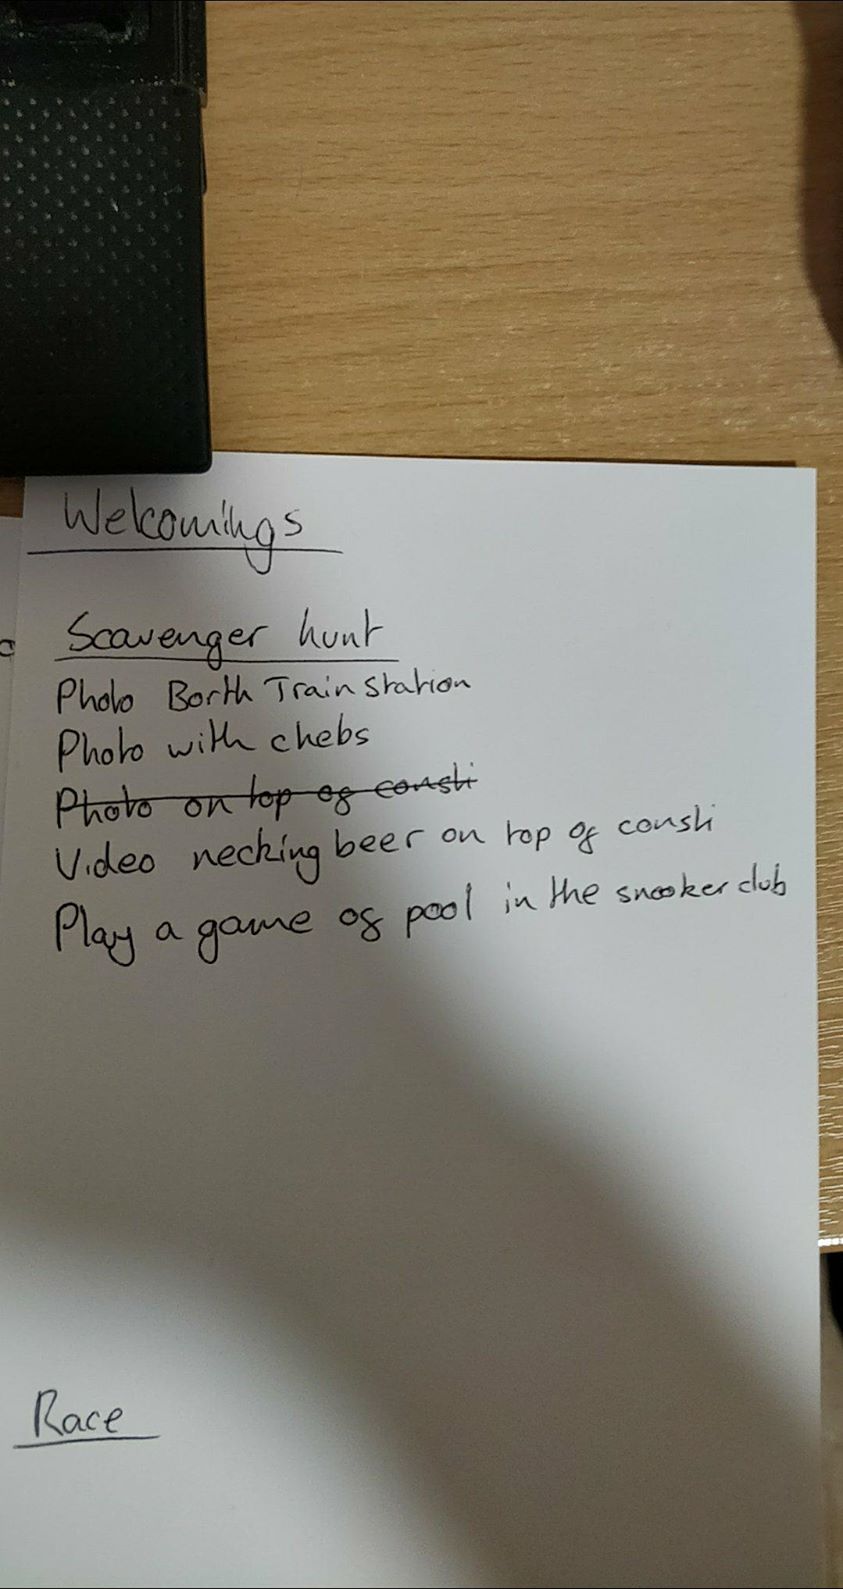 Welcomings
Scavenger hunt
Photo Borth Train station
Photo with chebs
Photo on top of consti
Video necking beer on top of consti
Play a game of pool in the snooker club
Race